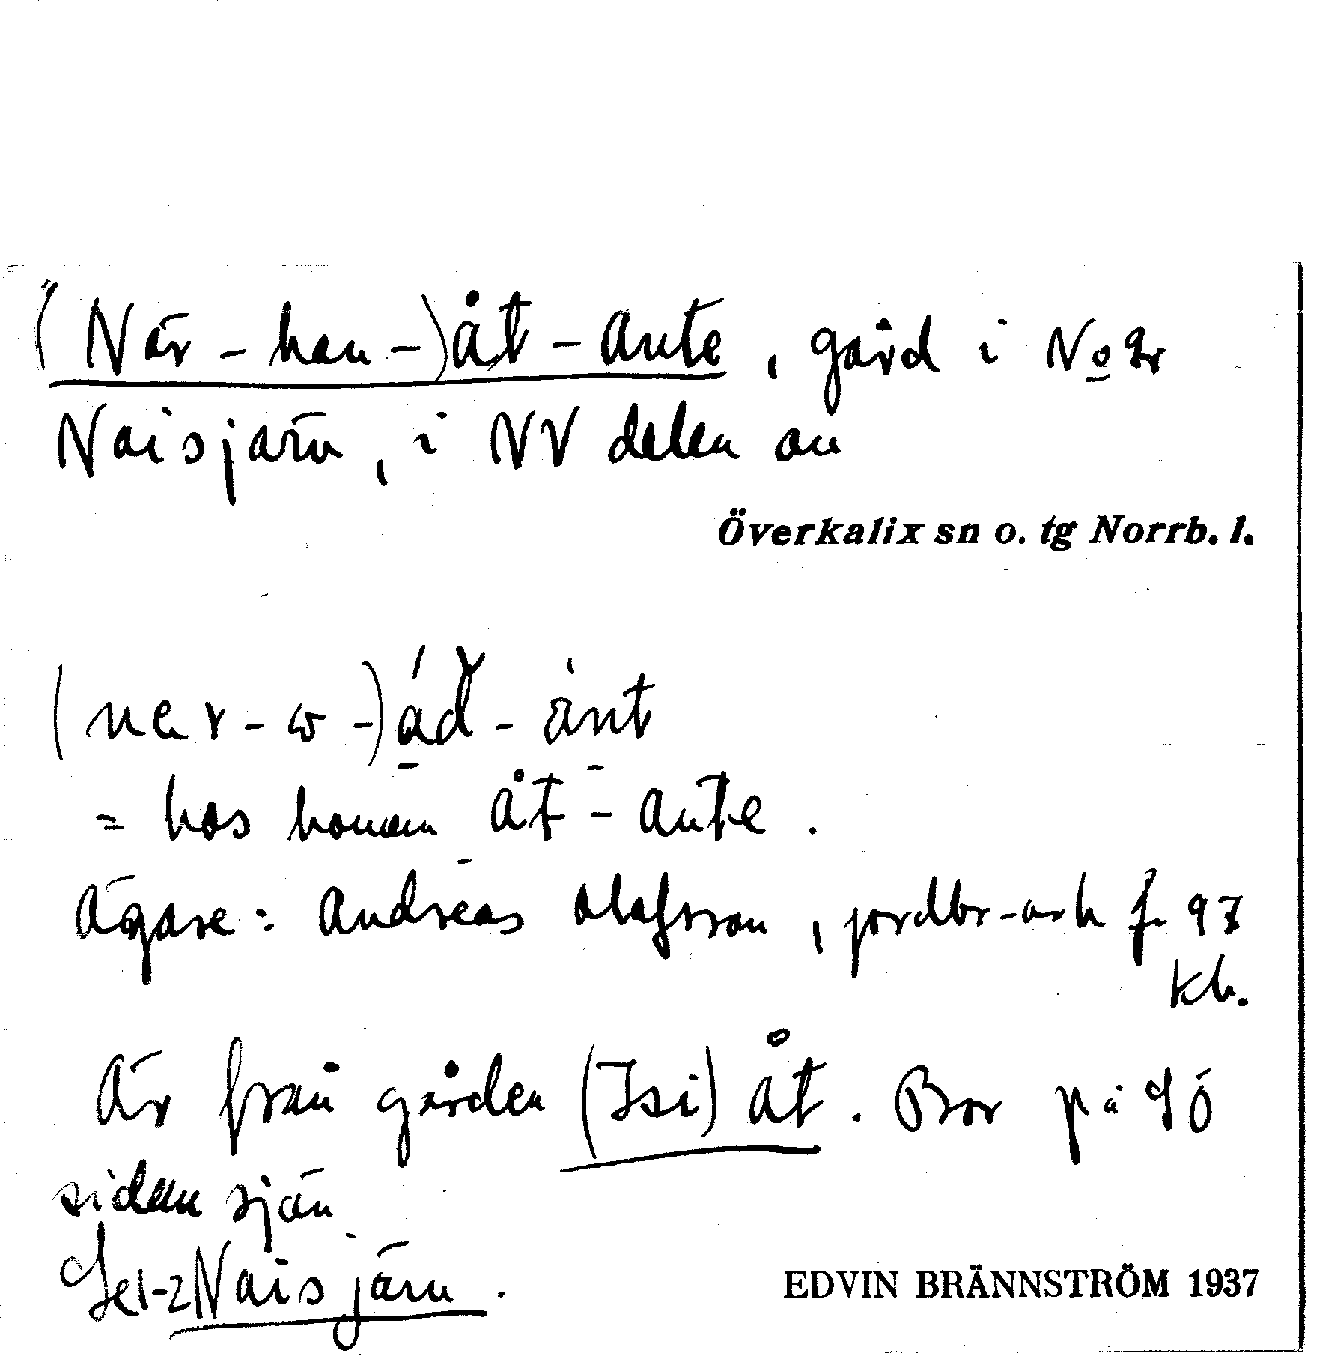 (När-han-)åt-ante, gård i No 2r
Naisjärv, i NV delen av
Överkalix sn o. tg Norrb. l.
= hos honom åt-ante.
Ägare: Andreas Olofsson, jordbr-arb f. 97
Kh.
Är från gården (Isi)åt. Bor på SÖ
sidan sjön
Se 1-2 Naisjärv.
EDVIN BRÄNNSTRÖM 1937